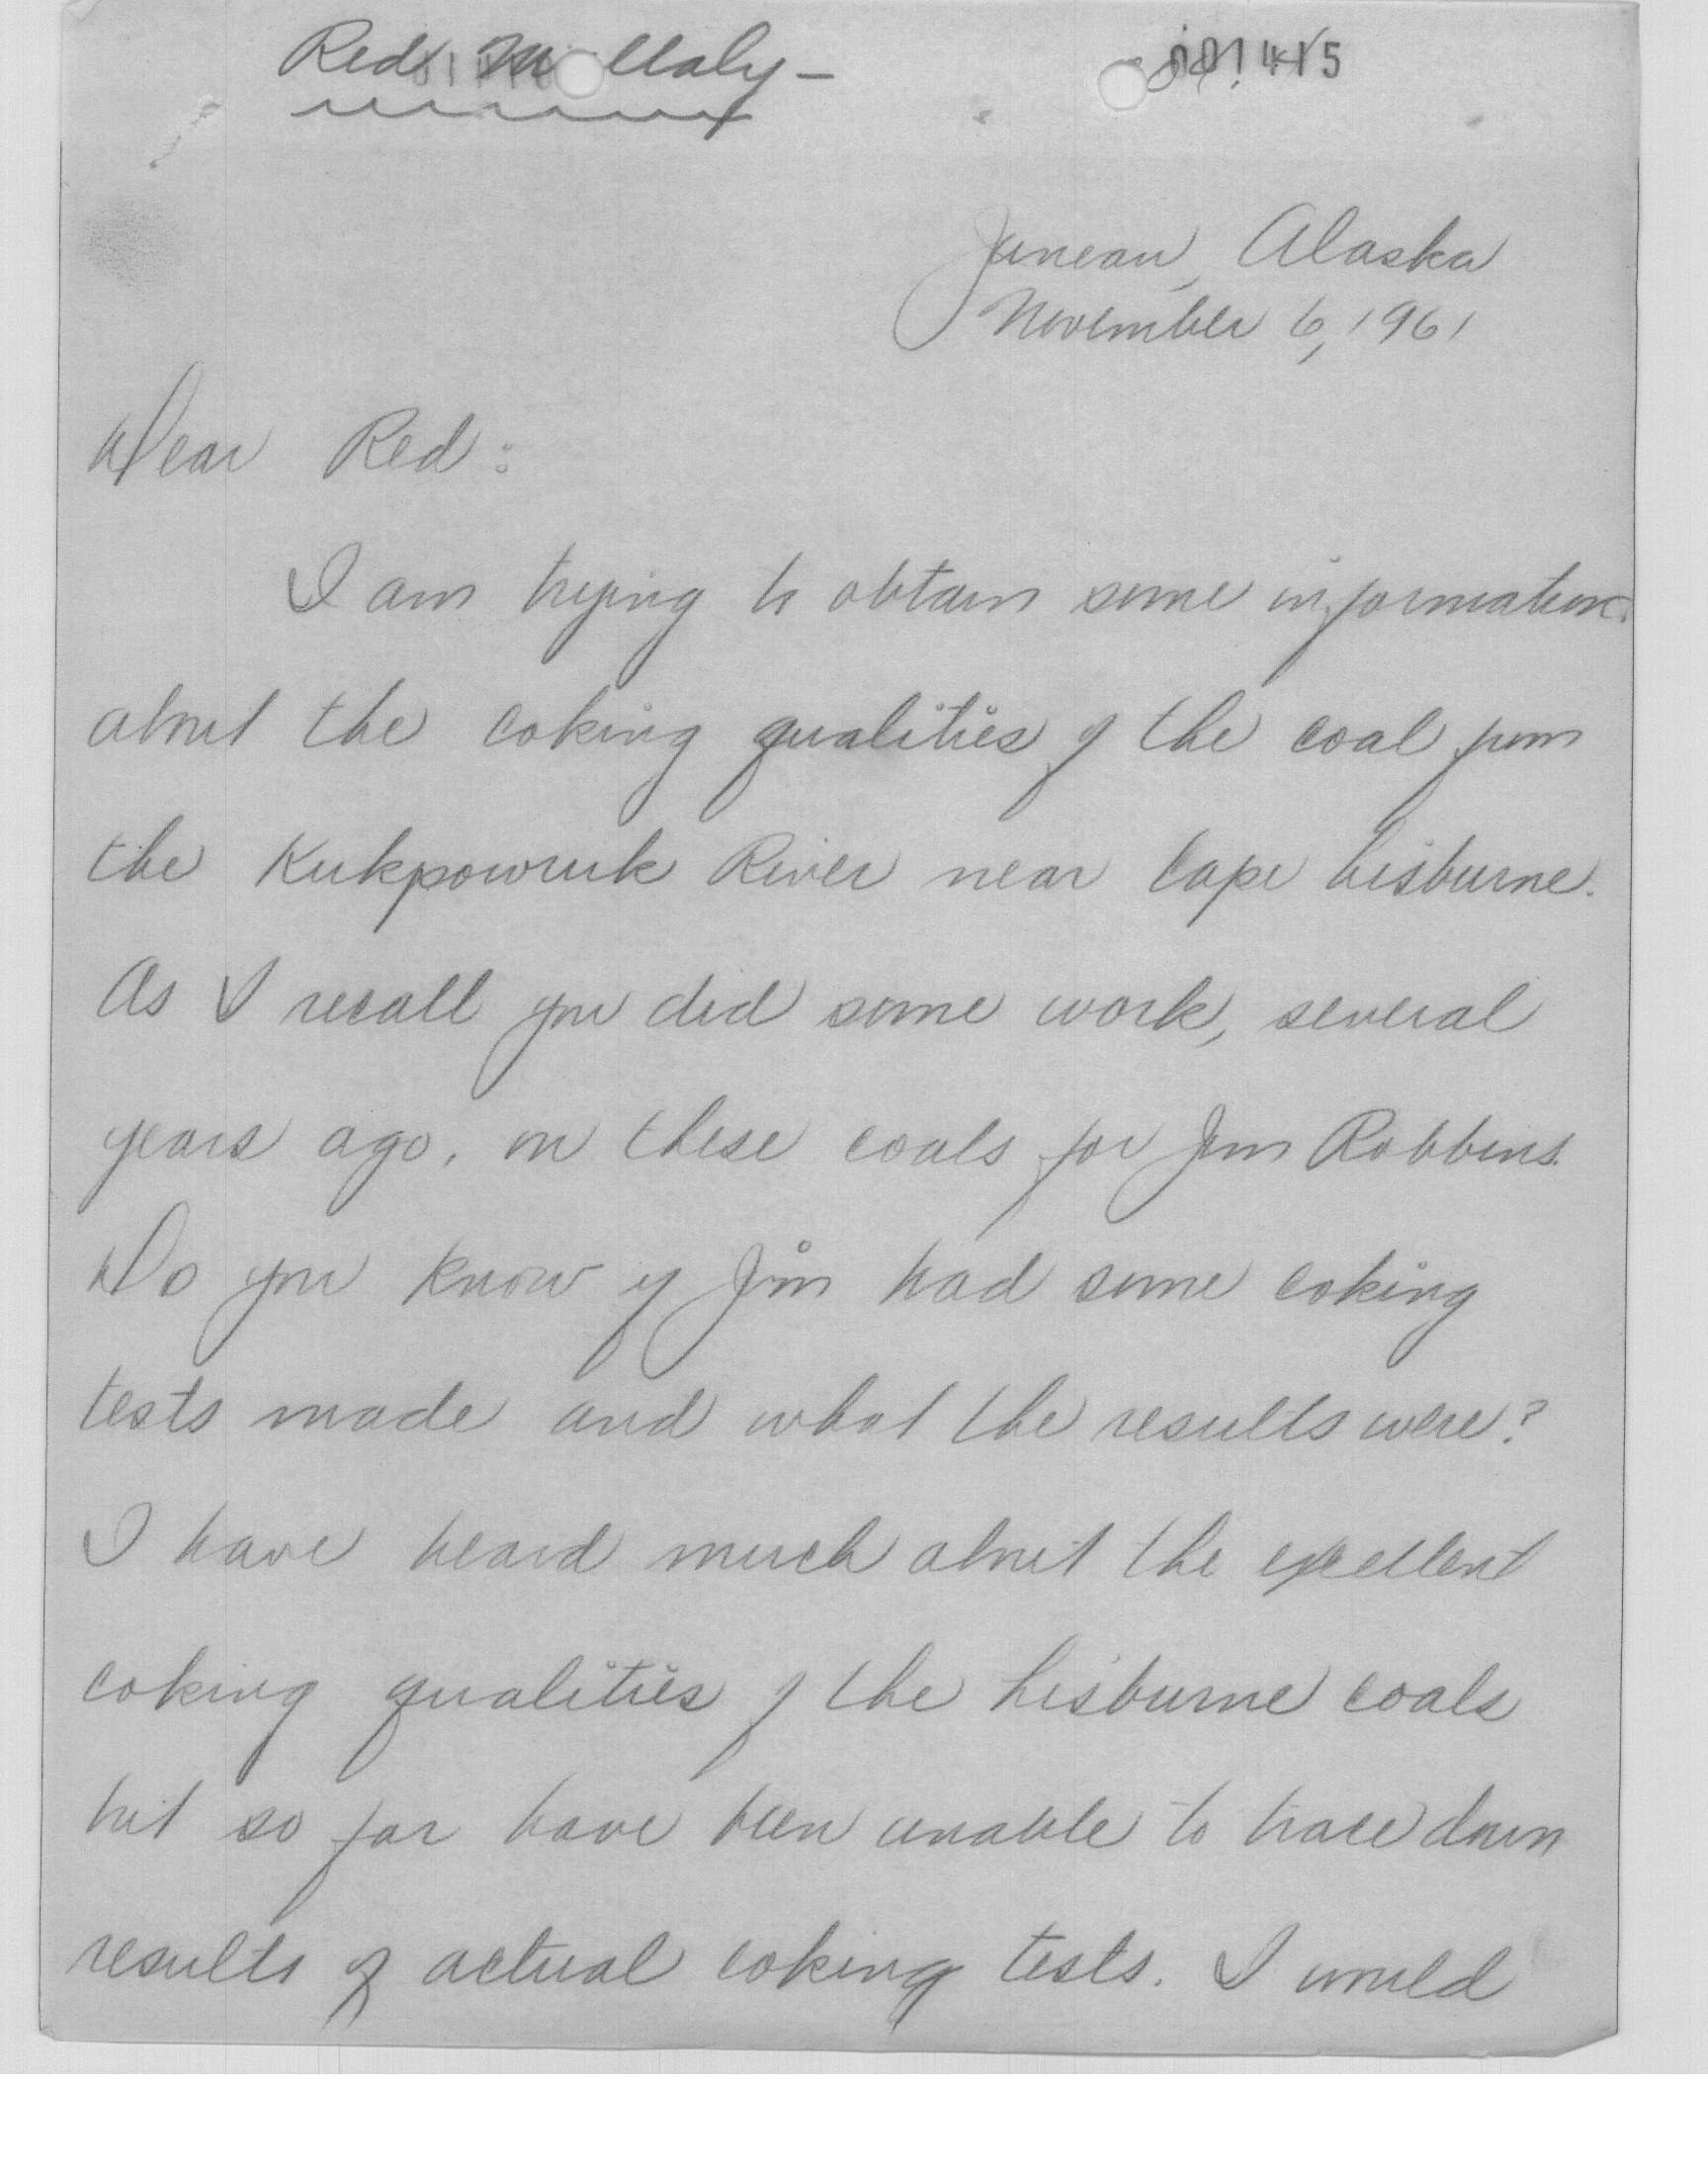 Red
001415
Juneau, Alaska
November 6, 1961
Dear Red:
I am trying to obtain some information
about the coking qualities of the coal from
the Kukpowruk River near Cape Lisburne.
As I recall you did some work, several
years ago, on these coals for Jim Robbins.
Do you know if Jim had some coking
tests made and what the results were?
I have heard much about the excellent
coking qualities of the Lisburne coals
but so far have been unable to trace down
results of actual coking tests. I would